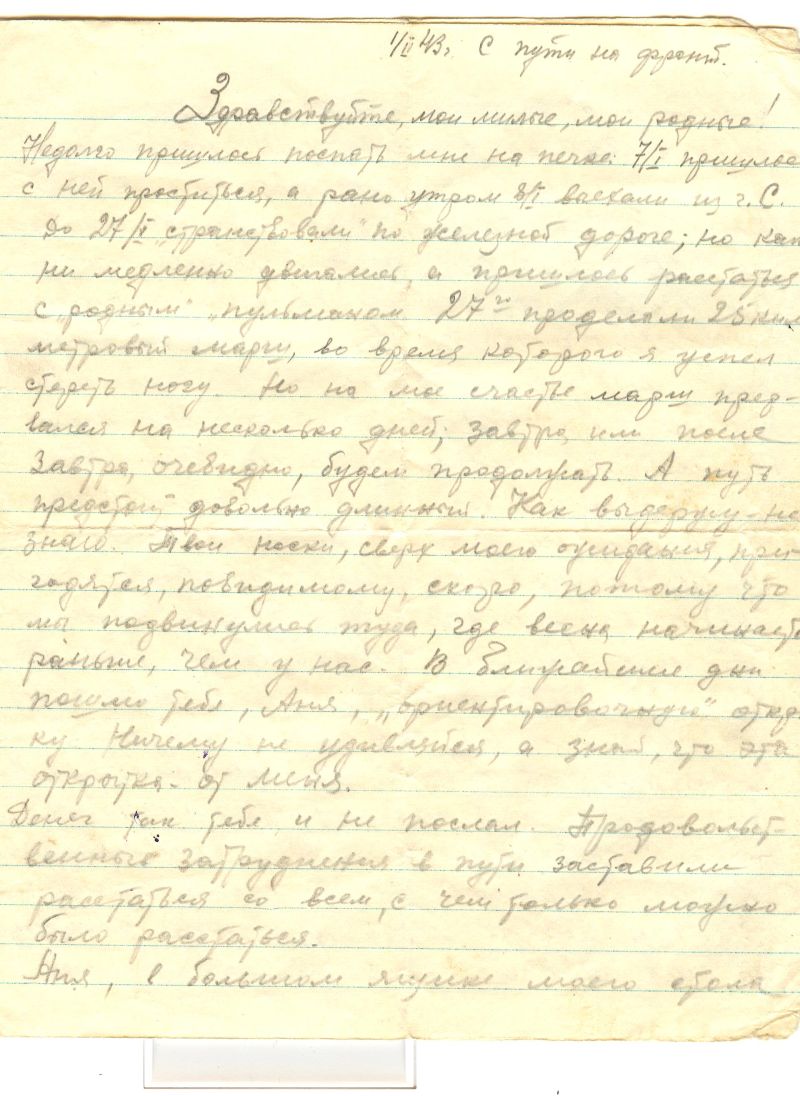 1/II 43 г. С пути на фронт.
Здравствуйте, мои милые, мои родные!
Недолго пришлось поспать мне на печке: 7/I пришлось
с ней проститься, а рано утром 8/I выехали из г. С.
До 27/I „странствовали" по железной дороге; но как
ни медленно двигались, а пришлось расстаться
с „родным" „пульманом. 27го проделали 25 кило
метровый марш, во время которого я успел
стереть ногу. Но на мое счастье марш прер-
вался на несколько дней; завтра или после
завтра, очевидно, будем продолжать. А путь
предстоит довольно длинный. Как выдержу – не
знаю. Твои носки, сверх моего ожидания, при-
годятся, повидимому, скоро, потому что
мы подвинулись туда, где весна начинается
раньше, чем у нас. В ближайшие дни
пошлю тебе, Аня, „ориентировочную" откры
ку Ничему не удивляйся, а знай, что эта
открытка – от меня.
Денег так тебе и не послал. Продовольст-
венные затруднения в пути заставили
расстаться со всем, с чем только можно
было расстаться.
Аня, в большом ящике моего стола